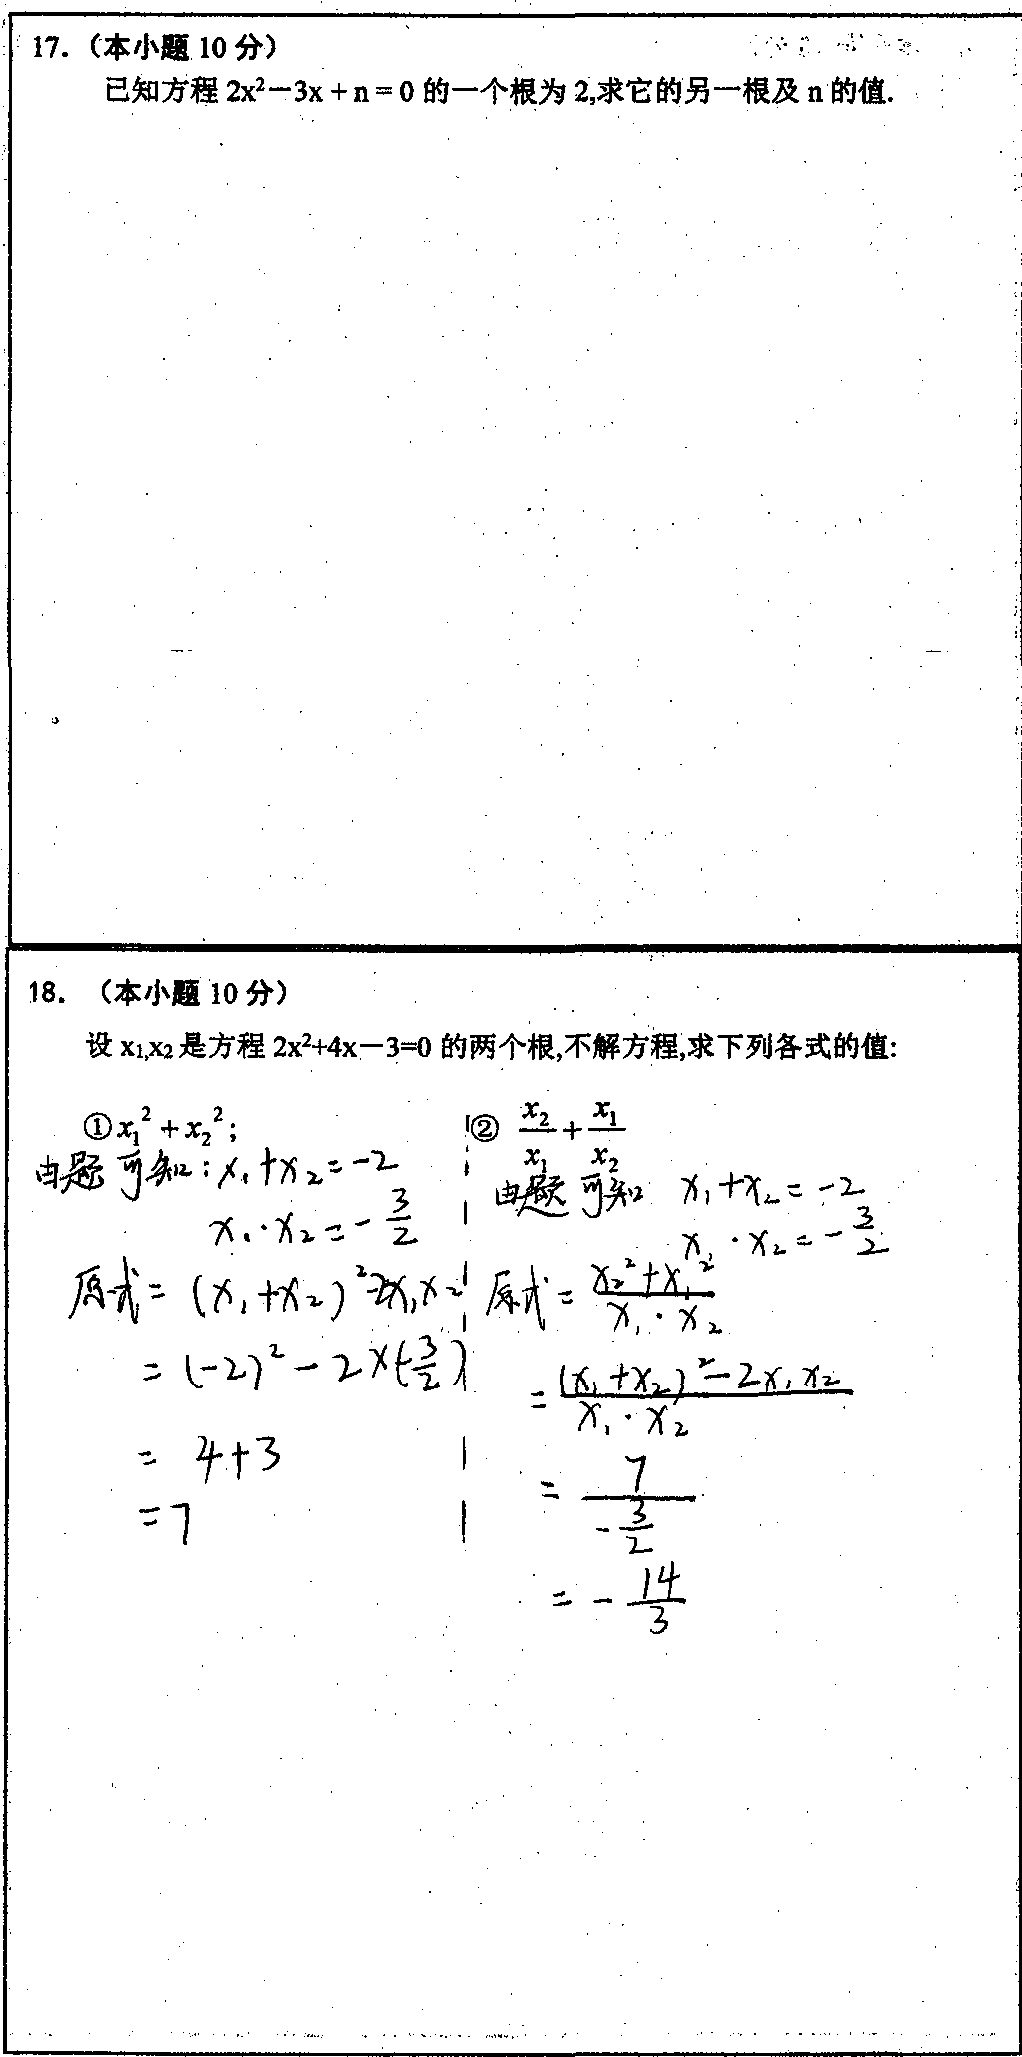 17.（本小题 10 分）
已知方程 2x²－3x + n = 0 的一个根为 2,求它的另一根及 n 的值.
18. （本小题 10 分）
设 x₁,x₂ 是方程 2x²+4x－3=0 的两个根,不解方程,求下列各式的值:
① x₁² + x₂² ;
由题可知: x₁+x₂=-2
x₁·x₂=-3/2
原式=(x₁+x₂)²-2x₁x₂
=(-2)²-2×(-3/2)
= 4+3
=7
② x₂/x₁ + x₁/x₂
由题可知 x₁+x₂=-2
x₁·x₂=-3/2
原式=(x₂²+x₁²)/(x₁·x₂)
=((x₁+x₂)²-2x₁x₂)/(x₁·x₂)
=7/(-3/2)
=-14/3